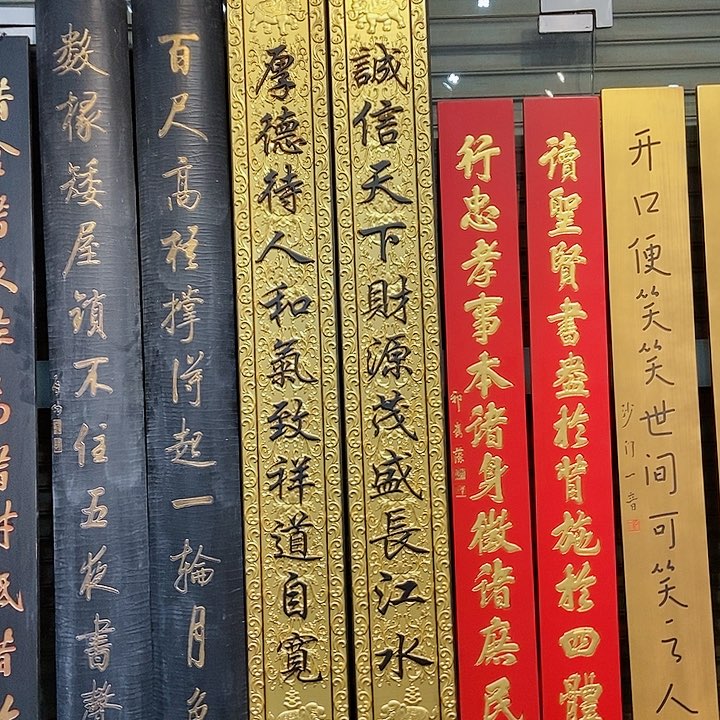 开口便笑笑世间可笑之人
沙门一音
讀聖賢書盎於背施於四體
行忠孝事本諸身徵諸庶民
誠信天下財源茂盛長江水
厚德待人和氣致祥道自寬
百尺高梧撐得起一輪月色
數椽矮屋鎖不住五夜書聲